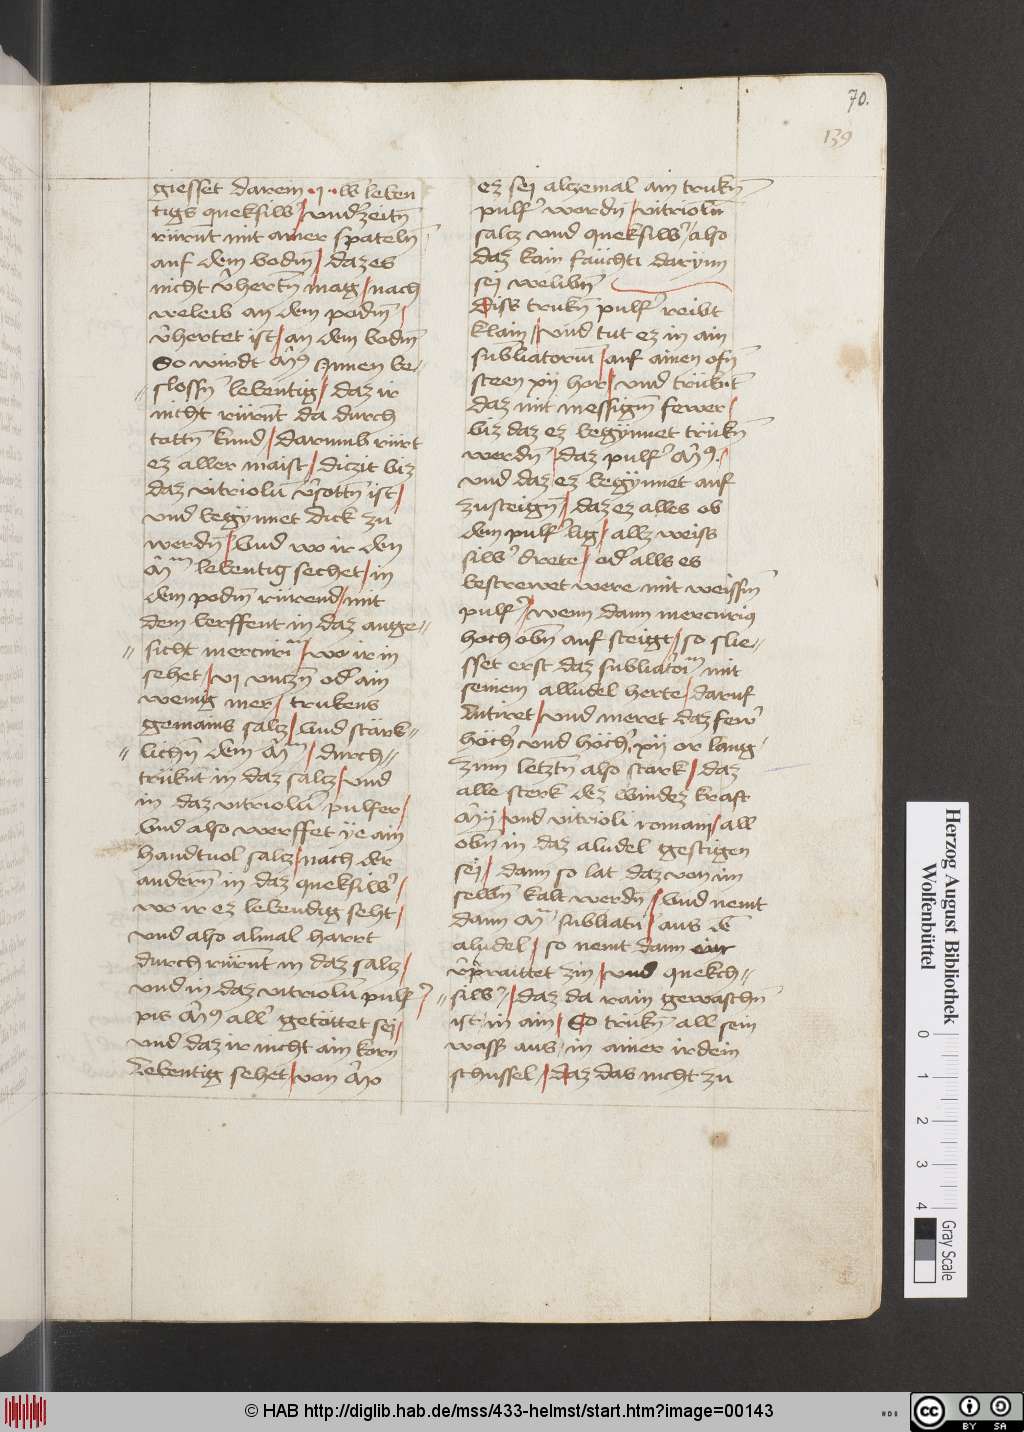 70.
139
giesset darein · ij · w̉ leben
tigs queksilw̉ / vnd zeitn̄
rürnt mit ainer spateln̄
auf dem bodm̄ / daz es
nicht v̉hertn̄ mag / nach
weleib an dem podm̄ /
v̉hertet ist / an dem bodm̄
So wirdt Innen be-
slossn̄ lebentig / daz ir
nicht rürnt da durch
tottn̄ kund / darumb rürt
ez aller maist / dicZit biz
daz vitriolū v̉sottn̄ ist /
vnd begÿnnet dick zu
werdn̄ / Vnd wo ir den
lebentig sechet / in
dem podm̄ rürend / mit
dem berffent in daz ange=
sicht mercurī / wo ir in
sehet / vj vnczn̄ od̉ ain
wenig mer / trukens
gemains salz / Vnd stärk=
lichn̄ dem / durch=
trüknt in daz salcz / vnd
in daz vitriolū pulfer /
Vnd also werffet ÿe ain
handtuol salcz / nach der
andern̄ in daz queksilw̉ /
wo ir ez lebendig seht /
vnd also almal harrt
durch rürnt in daz salcz /
vnd in daz vitriolū pulf̉ /
pis all̉ getöttet sej /
vnd daz ir nicht ain korn
Lebentig sehet / von
ez sej alczemal ain trukn̄
pulf̉ wordn̄ / vitriolū
salcz vnd queksilw̉ / also
daz kain fäuchti darÿnn
sej welibn̄
Diss trukn̄ pulf̉ reibt
klain / vnd tut ez in ain
subliatoriū / auf ainen ofn̄
steen xij hor / vnd trüknt
daz mit messigm̄ fewer /
biz daz ez begÿnnet trükn̄
werdn̄ / daz pulf̉
vnd daz ez begÿnnet auf
zusteign̄ / daz ez alles ob
dem pulf̉ lig / allz weiss
silw̉ drete / od̉ alls es
bestrewet were mit weissm̄
pulf̉ / wenn dann mercurius
hoch obn̄ auf steigt / so slie=
sset erst daz mit
seinem alludel herte / daruf
Lutiret / vnd meret daz few̉
höch̉ vnd höch̉, xij or lang
zum letztn̄ also stark / daz
alle sterk dez windez kraft
vnd vitrioli romani / all
obn̄ in daz aludel gestigen
sej / dann so lat daz von im
selbn̄ kalt werdn̄ / Vnd nemt
dann subliatū / aus d̄
aludel / so nemt dann eur
v̉praittet zin / vnd quekch=
silw̉ / daz da rain gewaschn̄
ist / in ain / So trükn̄ all sein
wass̉ aus / in ainer irdein
schussel / daz das nicht zu
Herzog August Bibliothek
Wolfenbüttel
0 1 2 3 4
Gray Scale
© HAB http://diglib.hab.de/mss/433-helmst/start.htm?image=00143
CC BY SA